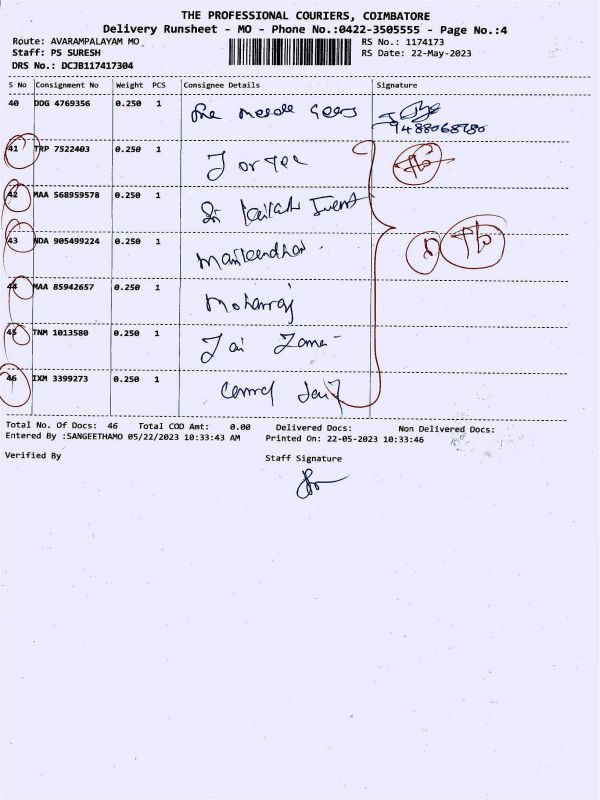 THE PROFESSIONAL COURIERS, COIMBATORE
Delivery Runsheet - MO - Phone No.:0422-3505555 - Page No.:4
Route: AVARAMPALAYAM MO
RS No.: 1174173
Staff: PS SURESH
RS Date: 22-May-2023
DRS No.: DCJB117417304
S No Consignment No Weight PCS Consignee Details Signature
40 DDG 4769356 0.250 1
41 TRP 7522403 0.250 1
42 MAA 568959578 0.250 1
43 NDA 905499224 0.250 1
44 MAA 85942657 0.250 1 Mohanraj
45 TNM 1013580 0.250 1 Jai
46 IXM 3399273 0.250 1
Total No. Of Docs: 46 Total COD Amt: 0.00 Delivered Docs: Non Delivered Docs:
Entered By :SANGEETHAMO 05/22/2023 10:33:43 AM Printed On: 22-05-2023 10:33:46
Verified By Staff Signature